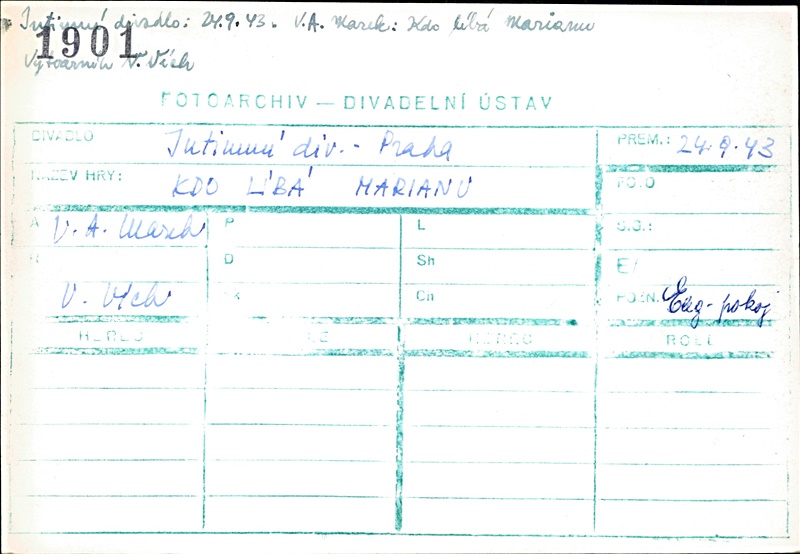 Intimné divadlo: 24.9.43. V.A. Marek: Kdo líbá Marianu
1901
Výtvarník V. Vích
FOTOARCHIV — DIVADELNÍ ÚSTAV
DIVADLO Intimné div. - Praha PREM.: 24.9.43
NÁZEV HRY: KDO LÍBÁ MARIANU FO.O
A V. A. Marek P L S.G.:
R D Sh E/
V. Vích K Ch POZN.
HEREC HEREC ROLE